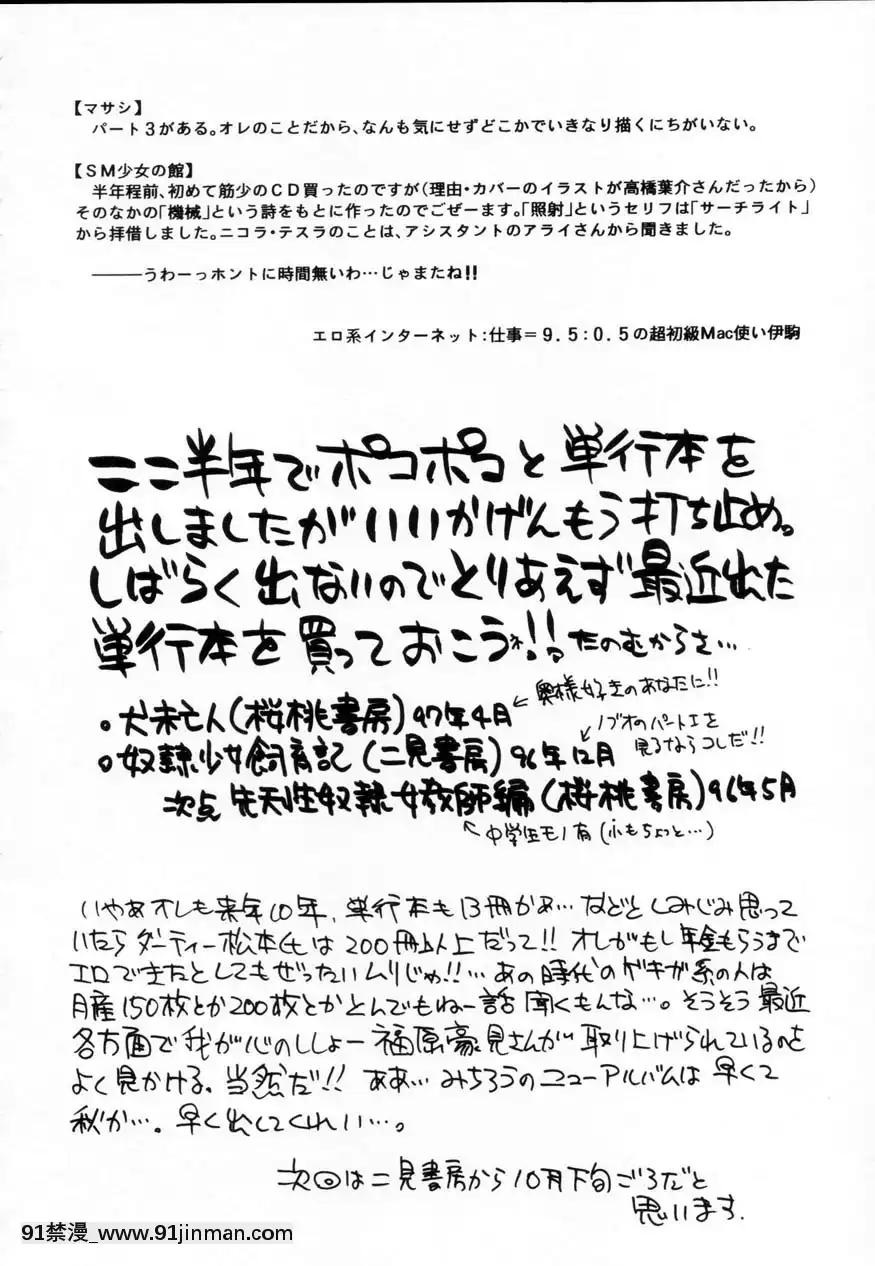 【マサシ】
パート3がある。オレのことだから、なんも気にせずどこかでいきなり描くにちがいない。
【SM少女の館】
半年程前、初めて筋少のCD買ったのですが(理由・カバーのイラストが高橋葉介さんだったから)
そのなかの「機械」という詩をもとに作ったのでごぜーます。「照射」というセリフは「サーチライト」
から拝借しました。ニコラ・テスラのことは、アシスタントのアライさんから聞きました。
―――うわーっホントに時間無いわ…じゃまたね!!
エロ系インターネット:仕事=9.5:0.5の超初級Mac使い伊駒
ここ半年でポコポコと単行本を
出しましたがいいかげんもう打ち止め。
しばらく出ないのでとりあえず最近出た
単行本を買っておこうネ!!。たのむからさ…
。犬未亡人(桜桃書房)97年4月
←奥様好きのあなたに!!
。奴隷少女飼育記(二見書房)96年12月
←ノブオのパート1を
見るならコレだ!!
次点 先天性奴隷女教師編(桜桃書房)96年5月
←中学生モノ有(小もちょっと…)
いやあオレも来年10年、単行本も13冊かぁ…などとしみじみ思って
いたらダーティー松本氏は200冊以上だって!! オレがもし年金もらうまで
エロで生きたとしてもぜったいムリじゃ!!…あの時代のゲキガ系の人は
月産150枚とか200枚とかとんでもねー話聞くもんな…。そうそう最近
各方面で我が心のししょー福原豪見さんが取り上げられているのを
よく見かける。当然だ!! ああ…みちろうのニューアルバムは早くて
秋か…。早く出してくれい…。
次回は二見書房から10月下旬ごろだと
思います.
91禁漫_www.91jinman.com